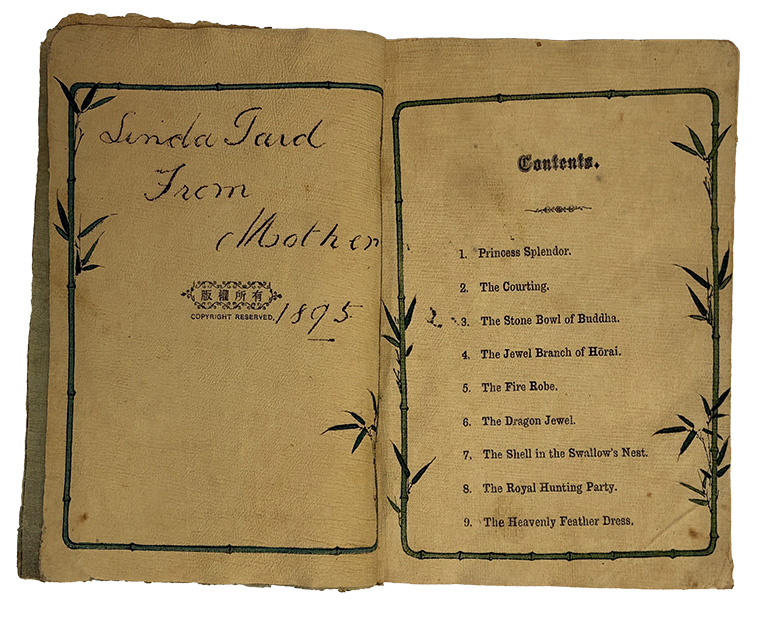 Linda Tard
From
Mother
版權所有
COPYRIGHT RESERVED.
1895
Contents.
1. Princess Splendor.
2. The Courting.
3. The Stone Bowl of Buddha.
4. The Jewel Branch of Hōrai.
5. The Fire Robe.
6. The Dragon Jewel.
7. The Shell in the Swallow's Nest.
8. The Royal Hunting Party.
9. The Heavenly Feather Dress.